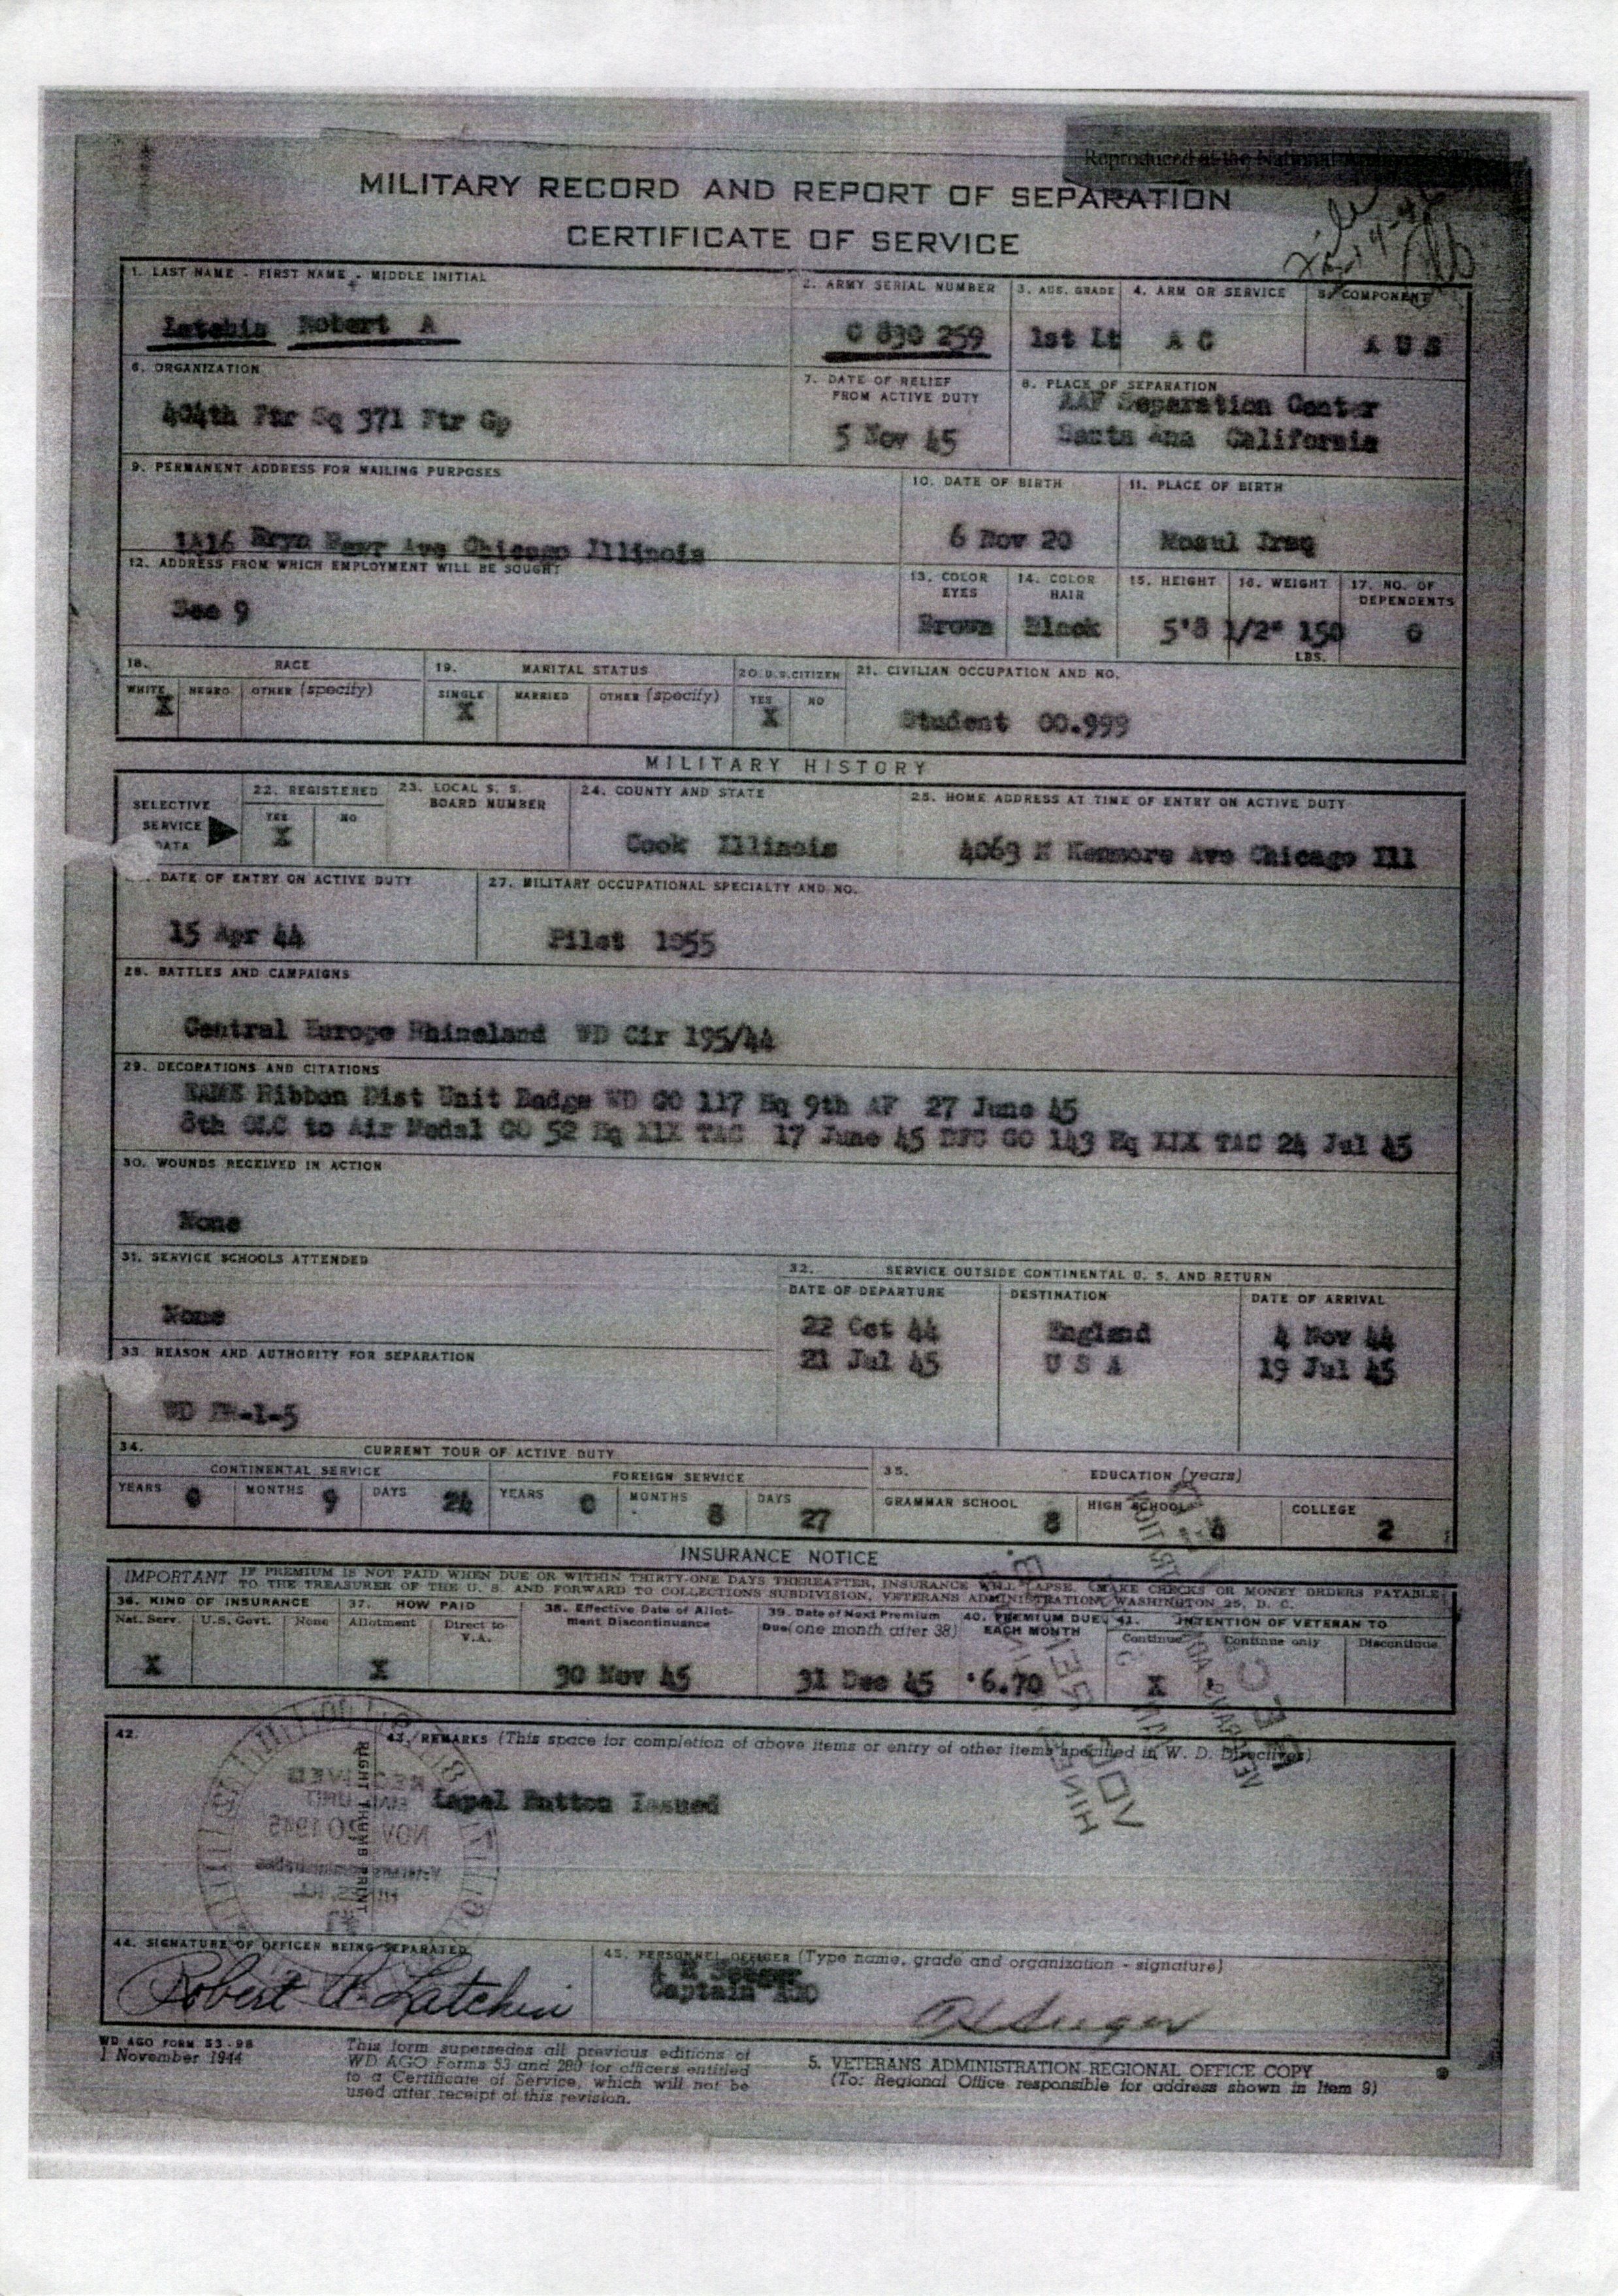 Reproduced at the National
MILITARY RECORD AND REPORT OF SEPARATION
CERTIFICATE OF SERVICE
1. LAST NAME - FIRST NAME - MIDDLE INITIAL
2. ARMY SERIAL NUMBER
3. AUS. GRADE
4. ARM OR SERVICE
5. COMPONENT
Robert A
O 830 259
1st Lt
A C
A U S
6. ORGANIZATION
7. DATE OF RELIEF
FROM ACTIVE DUTY
8. PLACE OF SEPARATION
404th Ftr Sq 371 Ftr Gp
5 Nov 45
AAF Separation Center
Santa Ana California
9. PERMANENT ADDRESS FOR MAILING PURPOSES
10. DATE OF BIRTH
11. PLACE OF BIRTH
1416 Bryn Mawr Ave Chicago Illinois
6 Nov 20
Mosul Iraq
12. ADDRESS FROM WHICH EMPLOYMENT WILL BE SOUGHT
13. COLOR
EYES
14. COLOR
HAIR
15. HEIGHT
16. WEIGHT
17. NO. OF
DEPENDENTS
See 9
Brown
Black
5'8 1/2"
150
LBS.
0
18. RACE
19. MARITAL STATUS
20. U.S. CITIZEN
21. CIVILIAN OCCUPATION AND NO.
WHITE
NEGRO
OTHER (specify)
SINGLE
MARRIED
OTHER (specify)
YES
NO
X
X
X
Student 00.999
MILITARY HISTORY
SELECTIVE
SERVICE
DATA
22. REGISTERED
YES
NO
X
23. LOCAL S. S.
BOARD NUMBER
24. COUNTY AND STATE
25. HOME ADDRESS AT TIME OF ENTRY ON ACTIVE DUTY
Cook Illinois
4063 N Kenmore Ave Chicago Ill
DATE OF ENTRY ON ACTIVE DUTY
27. MILITARY OCCUPATIONAL SPECIALTY AND NO.
15 Apr 44
Pilot 1055
28. BATTLES AND CAMPAIGNS
Central Europe Rhineland WD Cir 195/44
29. DECORATIONS AND CITATIONS
EAME Ribbon Dist Unit Badge WD GO 117 Hq 9th AF 27 June 45
8th OLC to Air Medal GO 52 Hq XIX TAC 17 June 45 DFC GO 143 Hq XIX TAC 24 Jul 45
30. WOUNDS RECEIVED IN ACTION
None
31. SERVICE SCHOOLS ATTENDED
32. SERVICE OUTSIDE CONTINENTAL U. S. AND RETURN
DATE OF DEPARTURE
DESTINATION
DATE OF ARRIVAL
None
22 Oct 44
England
4 Nov 44
21 Jul 45
U S A
19 Jul 45
33. REASON AND AUTHORITY FOR SEPARATION
WD RR-1-5
34. CURRENT TOUR OF ACTIVE DUTY
35. EDUCATION (years)
CONTINENTAL SERVICE
FOREIGN SERVICE
YEARS 0
MONTHS 9
DAYS 24
YEARS 0
MONTHS 8
DAYS 27
GRAMMAR SCHOOL 8
HIGH SCHOOL
COLLEGE 2
INSURANCE NOTICE
IMPORTANT IF PREMIUM IS NOT PAID WHEN DUE OR WITHIN THIRTY-ONE DAYS THEREAFTER, INSURANCE WILL LAPSE. MAKE CHECKS OR MONEY ORDERS PAYABLE
TO THE TREASURER OF THE U. S. AND FORWARD TO COLLECTIONS SUBDIVISION, VETERANS ADMINISTRATION, WASHINGTON 25, D. C.
36. KIND OF INSURANCE
37. HOW PAID
38. Effective Date of Allot-
ment Discontinuance
39. Date of Next Premium
Due (one month after 38)
40. PREMIUM DUE
EACH MONTH
41. INTENTION OF VETERAN TO
Nat. Serv.
U.S. Govt.
None
Allotment
Direct to
V.A.
Continue
Continue only
Discontinue
X
X
30 Nov 45
31 Dec 45
6.70
X
42.
43. REMARKS (This space for completion of above items or entry of other items specified in W. D. Directives)
RIGHT THUMB PRINT
RECEIVED
NOV 20 1945
Lapel Button Issued
44. SIGNATURE OF OFFICER BEING SEPARATED
45. PERSONNEL OFFICER (Type name, grade and organization - signature)
Robert A. Latchin
Captain
WD AGO FORM 53-98
1 November 1944
This form supersedes all previous editions of
WD AGO Forms 53 and 280 for officers entitled
to a Certificate of Service, which will not be
used after receipt of this revision.
5. VETERANS ADMINISTRATION REGIONAL OFFICE COPY
(To: Regional Office responsible for address shown in Item 9)